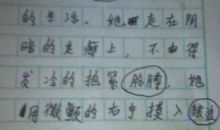 的生活。她走在阴
暗的走廊上，不由得
发冷的抱紧胳膊，她
用微颤的右手摸入